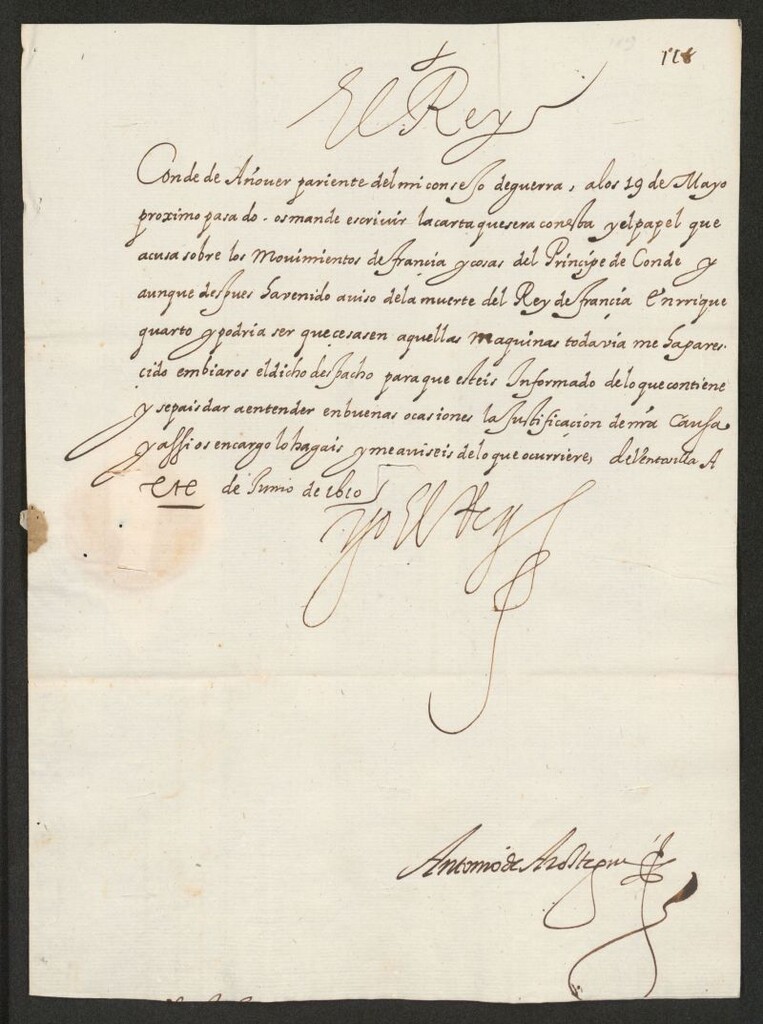 118
El Rey
Conde de Añouer pariente del mi consejo de guerra, a los 19 de Mayo
proximo pasado os mande escriuir la carta que sera con esta y el papel que
acusa sobre los Mouimientos de francia y cosas del Principe de Conde y
aunque despues ha venido auiso de la muerte del Rey de francia Enrrique
quarto y podria ser que cesasen aquellas maquinas todavia me ha pares-
cido embiaros el dicho despacho para que esteis Informado de lo que contiene
y sepais dar a entender en buenas ocasiones la Justificacion de nrã Causa
y assi os encargo lo hagais y me auiseis de lo que ocurriere, de Ventosilla A
de Junio de 1610
Yo El Rey
Antonio de Arostegui